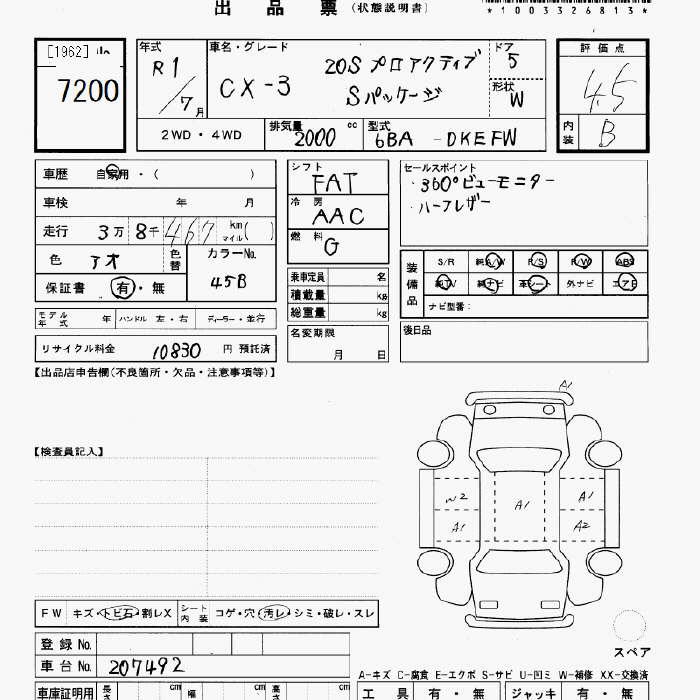 出品票(状態説明書)
*1003326813*
[1962]
7200
年式
R1/7月
車名・グレード
CX-3
20S プロアクティブ
Sパッケージ
ドア
5
形状
W
評価点
4.5
内装
B
2WD・4WD
排気量
2000 cc
型式
6BA-DKEFW
車歴 自家用・( )
車検 年 月
走行 3万8千467 km マイル( )
色 アオ
色替
カラーNo.
45B
保証書 有・無
シフト
FAT
冷房
AAC
燃料
G
乗車定員 名
積載量 kg
総重量 kg
名変期限
月 日
セールスポイント
・360°ビューモニター
・ハーフレザー
装備品
S/R 純A/W P/S P/W ABS
純TV 純ナビ 革シート 外ナビ エアB
ナビ型番:
後日品
モデル年式 年 ハンドル 左・右 ディーラー・並行
リサイクル料金 10830 円 預託済
【出品店申告欄(不良箇所・欠品・注意事項等)】
【検査員記入】
A1
W2 A1 A1
A1 A2
スペア
FW キズ・トビ石・割レX シート内装 コゲ・穴・汚レ・シミ・破レ・スレ
登録No.
車台No. 207492
A-キズ C-腐食 E-エクボ S-サビ U-凹ミ W-補修 XX-交換済
車庫証明用 長さ cm 幅 cm 高さ cm
工具 有・無 ジャッキ 有・無